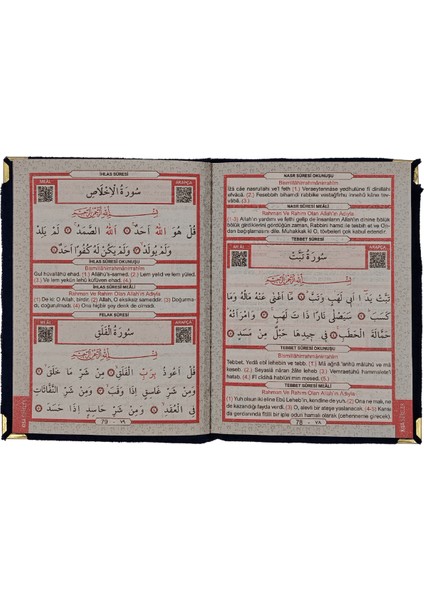 İHLAS SÛRESİ
MEÂL
ARAPÇA
سُورَةُ الْاِخْلَاصِ
بِسْمِ اللّٰهِ الرَّحْمٰنِ الرَّحِيمِ
قُلْ هُوَ اللّٰهُ اَحَدٌ اَللّٰهُ الصَّمَدُ لَمْ يَلِدْ
وَلَمْ يُولَدْ وَلَمْ يَكُنْ لَهُ كُفُوًا اَحَدٌ
İHLAS SÛRESİ OKUNUŞU
Bismillâhirrahmânirrahîm
Gul huvallâhü ehad. (1) Allâhü's-samed. (2) Lem yelid ve lem yûled.
(3) Ve lem yekün lehû küfüven ehad. (4)
İHLAS SÛRESİ MEÂLİ
Rahman Ve Rahim Olan Allah'ın Adıyla
(1) De ki: O Allah, birdir. (2) Allah, O eksiksiz sameddir. (3) Doğurma-
dı, doğurulmadı. (4) Ona hiçbir şey denk de olmadı.
FELAK SÛRESİ
MEÂL
ARAPÇA
سُورَةُ الْفَلَقِ
بِسْمِ اللّٰهِ الرَّحْمٰنِ الرَّحِيمِ
قُلْ اَعُوذُ بِرَبِّ الْفَلَقِ مِنْ شَرِّ مَا خَلَقَ
وَمِنْ شَرِّ غَاسِقٍ اِذَا وَقَبَ وَمِنْ شَرِّ النَّفَّاثَاتِ
فِي الْعُقَدِ وَمِنْ شَرِّ حَاسِدٍ اِذَا حَسَدَ
79 - ٧٩
NASR SÛRESİ OKUNUŞU
Bismillâhirrahmânirrahîm
İzâ câe nasrullahi ve'l feth (1). Veraeytennâse yedhulûne fî dînillâhi
efvâcâ. (2) Fesebbih bihamdi rabbike vestağfirhu innehû kâne tev-
vâbâ. (3)
NASR SÛRESİ MEÂLİ
Rahman Ve Rahim Olan Allah'ın Adıyla
(1-3) Allah'ın yardımı ve fethi gelip de insanların Allah'ın dinine bölük
bölük girdiklerini gördüğün zaman, Rabbini hamd ile tesbih et ve On-
dan bağışlanmanı dile. Muhakkak ki O, tövbeleri çok kabul edendir.
TEBBET SÛRESİ
MEÂL
ARAPÇA
سُورَةُ تَبَّتْ
بِسْمِ اللّٰهِ الرَّحْمٰنِ الرَّحِيمِ
تَبَّتْ يَدَا اَبِي لَهَبٍ وَتَبَّ مَا اَغْنٰى عَنْهُ مَالُهُ وَمَا
كَسَبَ سَيَصْلٰى نَارًا ذَاتَ لَهَبٍ وَامْرَاَتُهُ
حَمَّالَةَ الْحَطَبِ فِي جِيدِهَا حَبْلٌ مِنْ مَسَدٍ
TEBBET SÛRESİ OKUNUŞU
Bismillâhirrahmânirrahîm
Tebbet. Yedâ ebî lehebin ve tebb. (1) Mâ ağnâ 'anhü mâlühû ve mâ
keseb. (2) Seyaslâ nâran zâte leheb. (3) Vemraetühû hammâlete'l
hatab. (4) Fî cîdihâ hablün min mesed. (5)
TEBBET SÛRESİ MEÂLİ
Rahman Ve Rahim Olan Allah'ın Adıyla
(1) Yuh olsun iki eline Ebû Leheb'in, kendine de yuh. (2) Ona ne malı, ne
de kazandığı fayda verdi. (3) O, alevli bir ateşe yaslanacak. (4-5) Karısı
da gerdanında fitilli bir iple odun hamalı olarak (cehenneme girecek).
78 - ٧٨